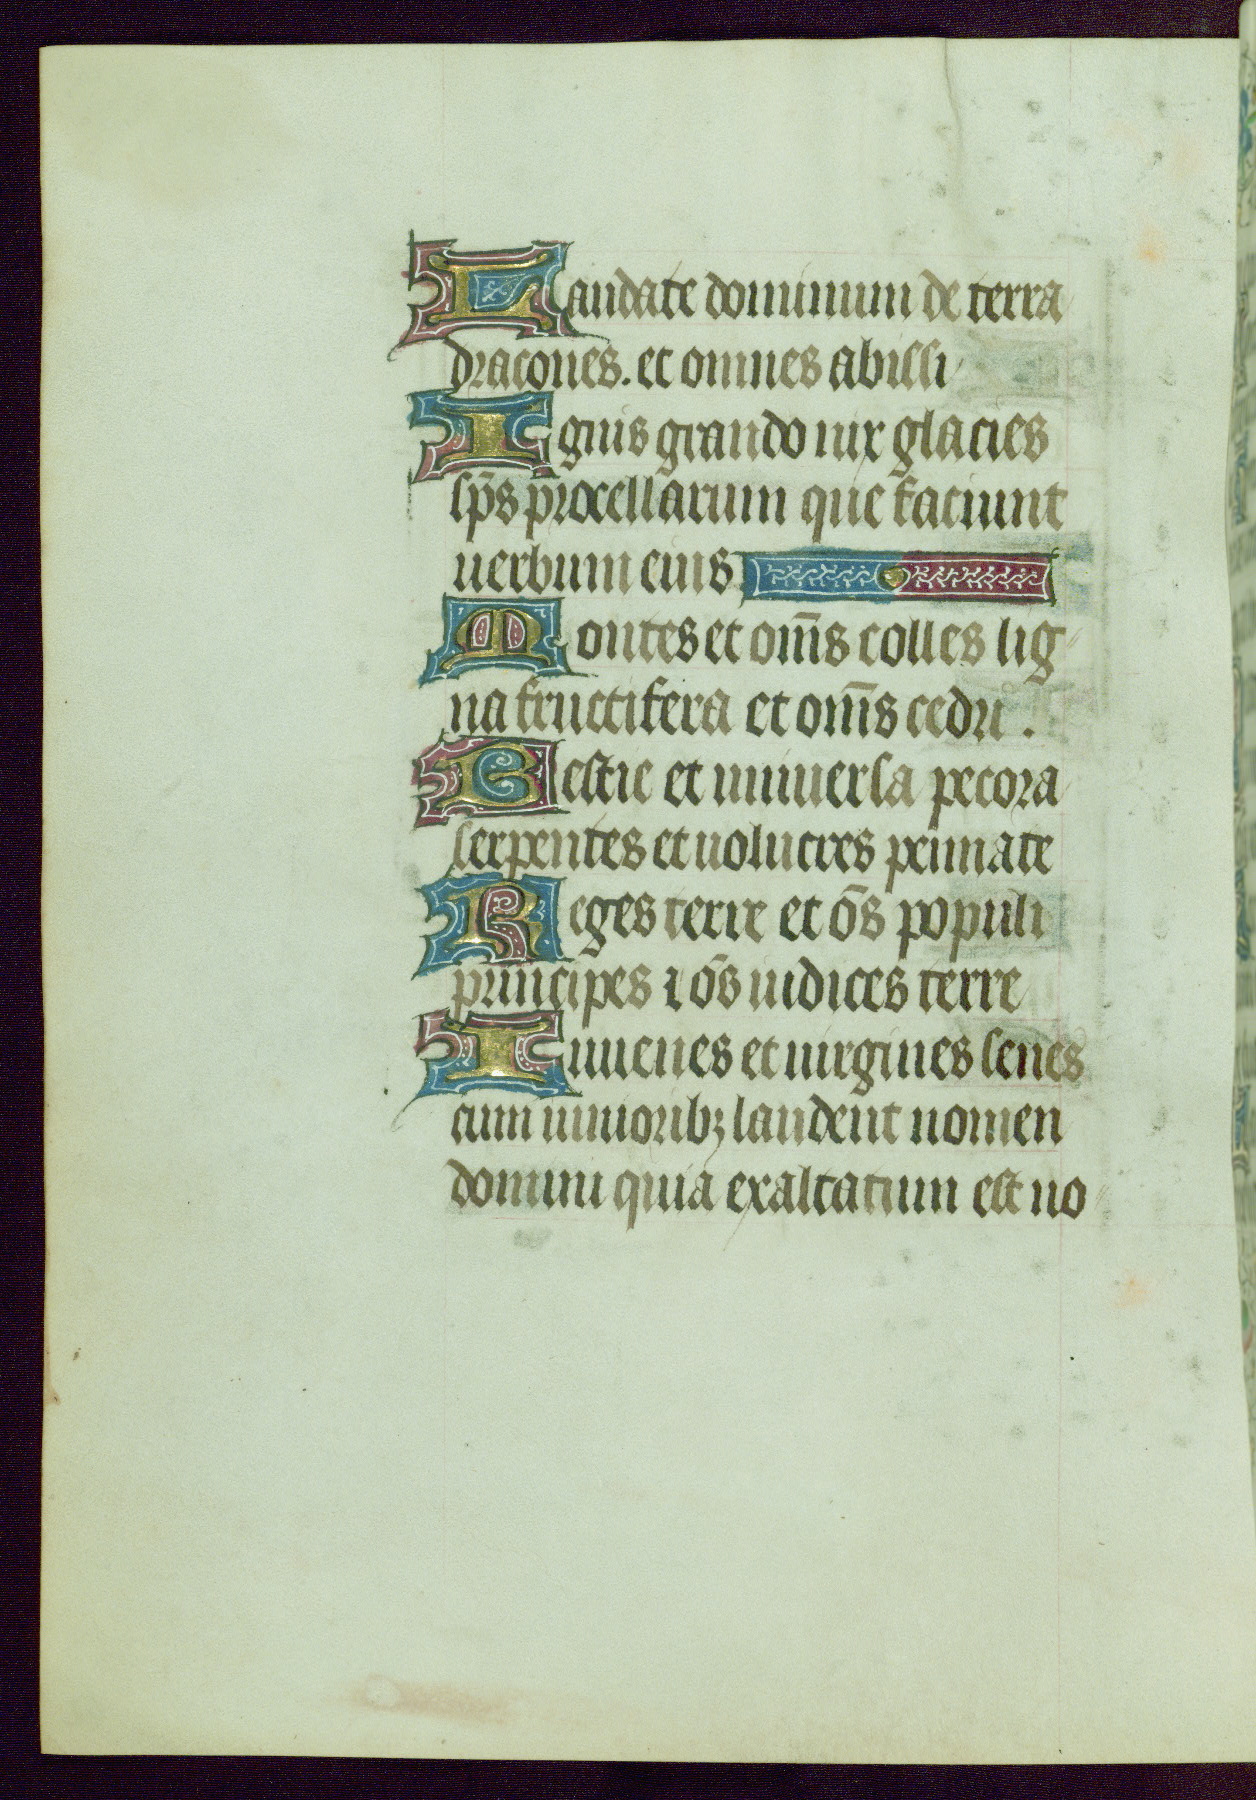 Laudate dominum de terra
dracones. et omnes abissi
Ignis grando nix glacies
sp̄s p̄rocellarum que faciunt
uerbum eius
Montes et om̄s colles lig
na fructifera et om̄s cedri.
Bestie et uniuersa pecora
serpentes et uolucres pennate
Reges terre et ōs populi
principes ⁊ ōs iudices terre
Iuuenes et uirgines senes
cum iunioribꝫ laudent nomen
domini quia exaltatum est no